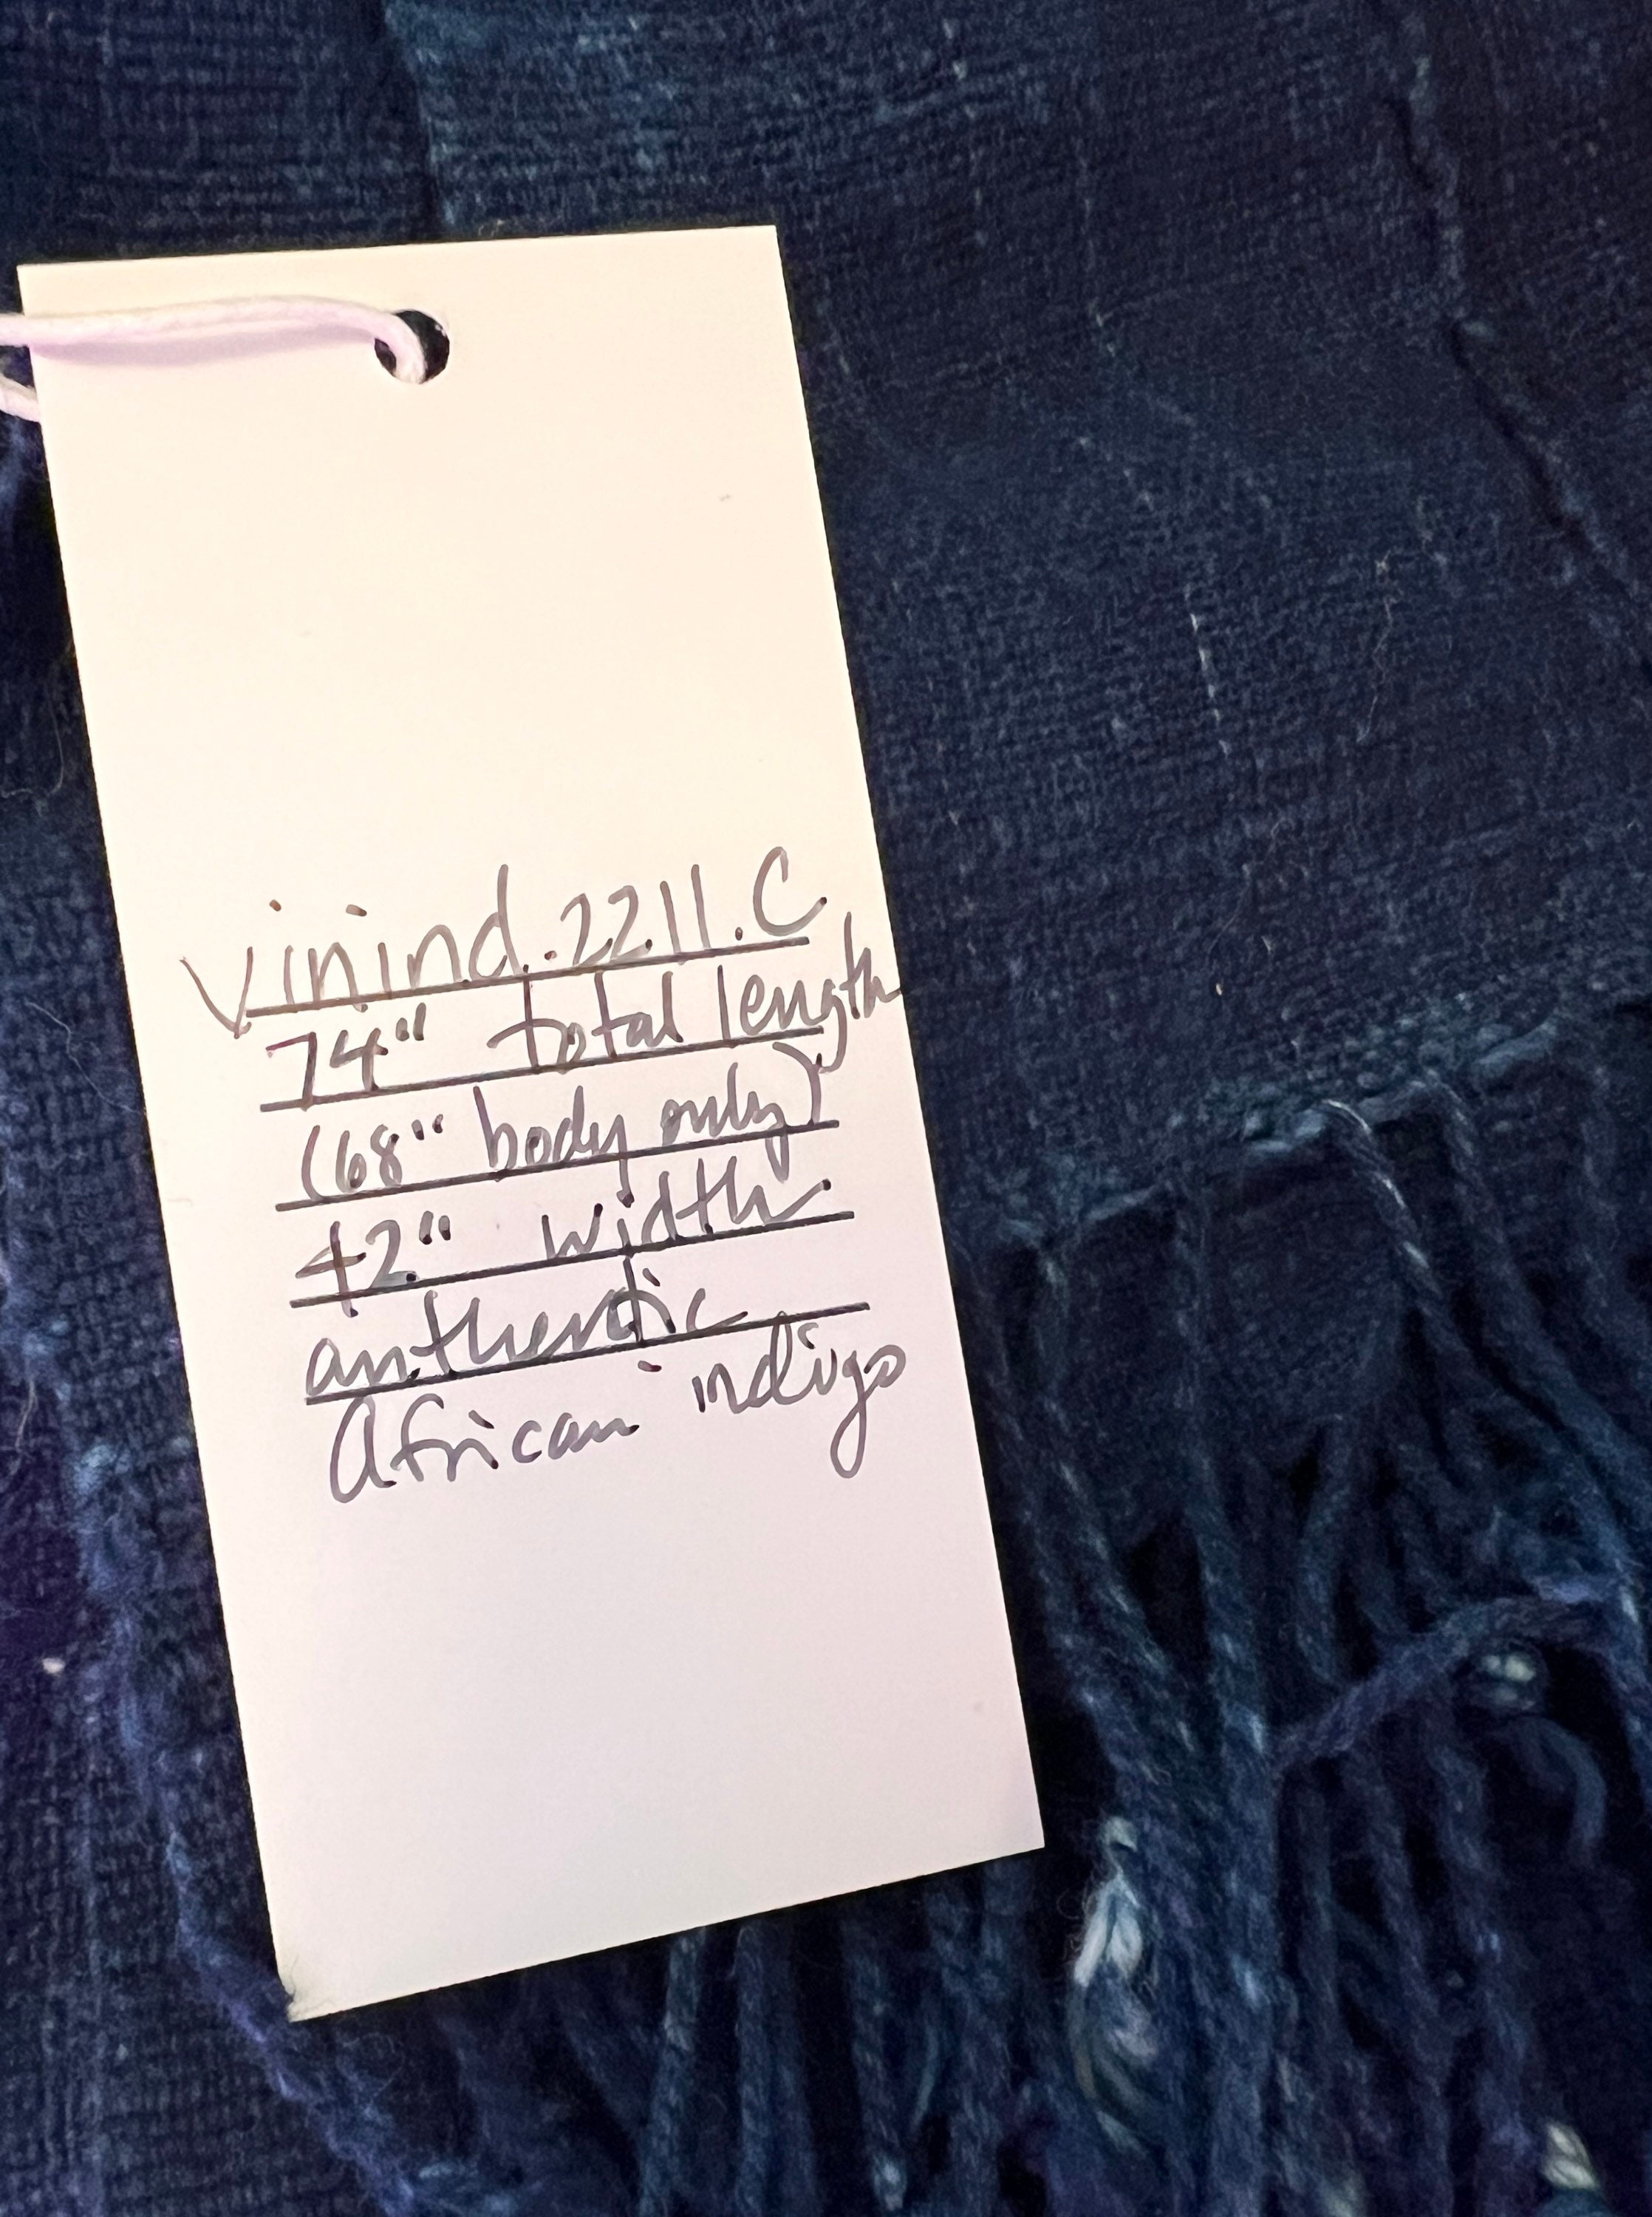 vinind.2211.C
74" total length
(68" body only)
42" width
authentic
African indigo